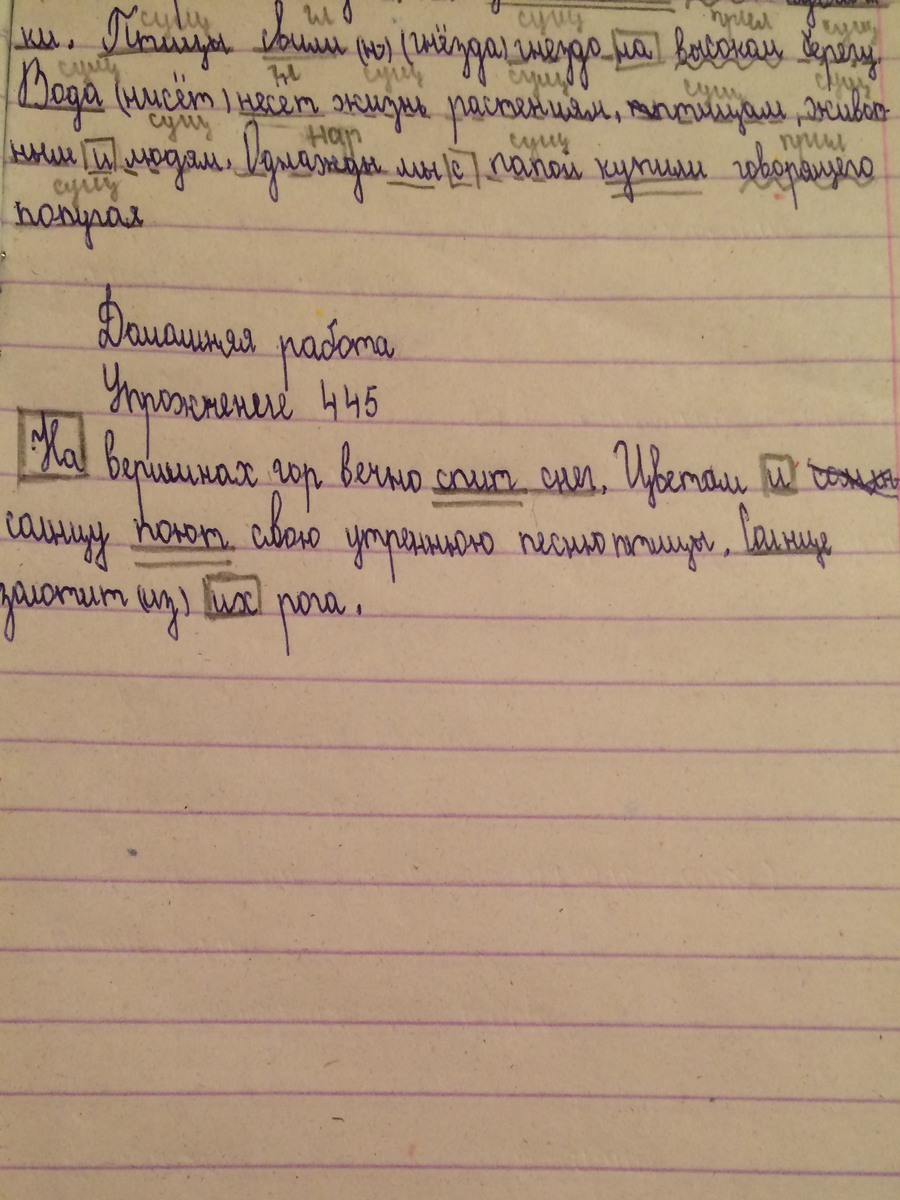 сущ гл сущ прил сущ
ки. Птицы свили (нэ) (гнёзда) гнездо на высоком берегу.
сущ гл сущ сущ сущ сущ
Вода (нисёт) несёт жизнь растениям, птицам, живот-
сущ нар сущ прил
ным и людям. Однажды мы с папой купили говорящего
сущ
попугая
Домашняя работа
Упрожнение 445
На вершинах гор вечно спит снег. Цветам и
солнцу поют свою утреннюю песню птицы. Солнце
золотит (из) их рога.